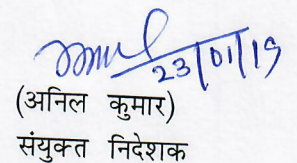 23/01/19
(अनिल कुमार)
संयुक्त निदेशक